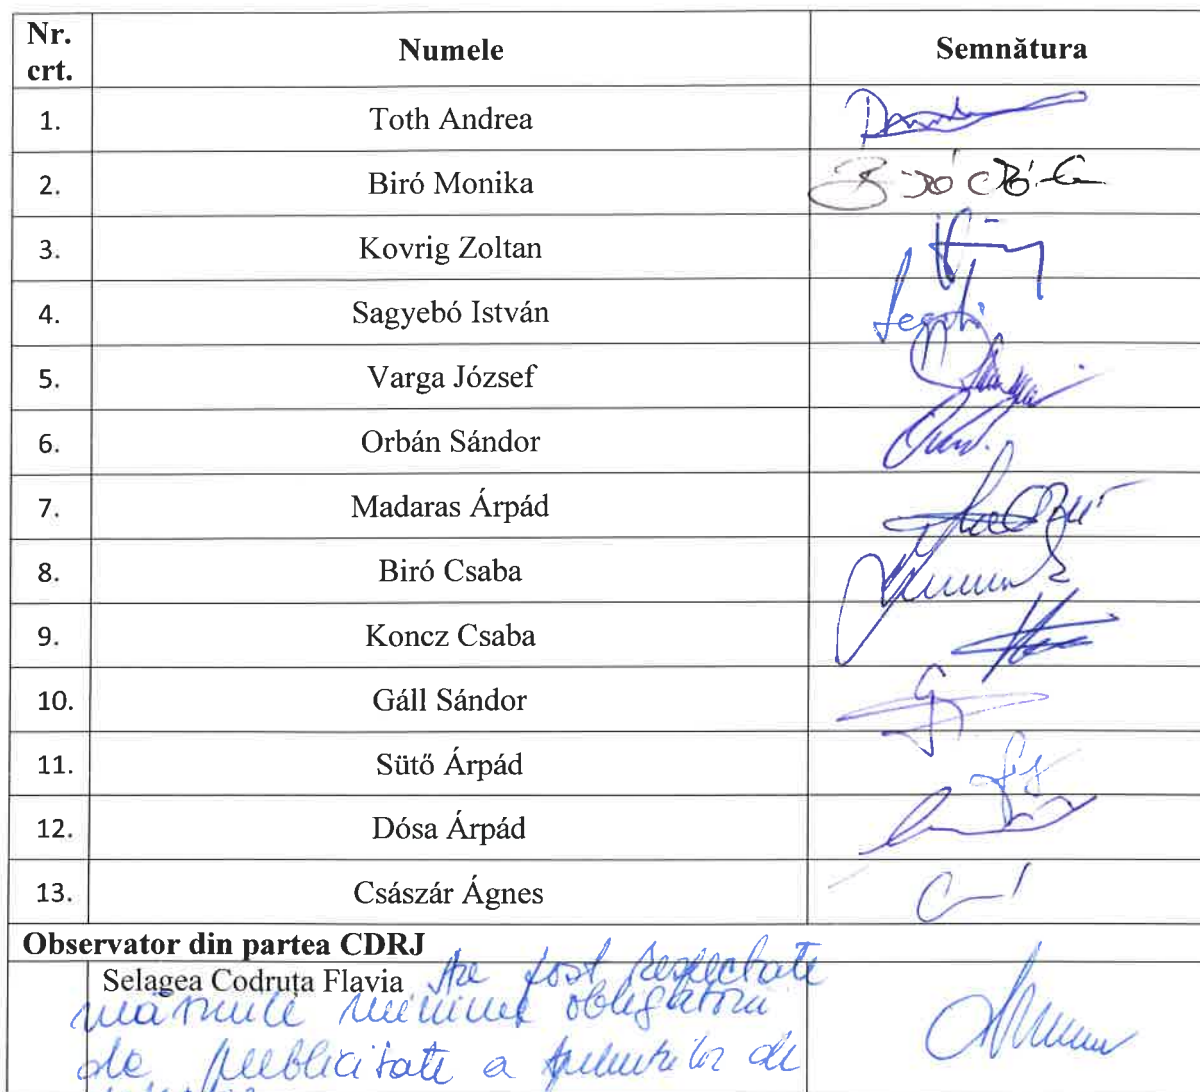 Nr. crt. Numele Semnătura
1. Toth Andrea
2. Biró Monika
3. Kovrig Zoltan
4. Sagyebó István
5. Varga József
6. Orbán Sándor
7. Madaras Árpád
8. Biró Csaba
9. Koncz Csaba
10. Gáll Sándor
11. Sütő Árpád
12. Dósa Árpád
13. Császár Ágnes
Observator din partea CDRJ
Selagea Codruța Flavia fost respectate
minime obligatorii
de publicitate a de